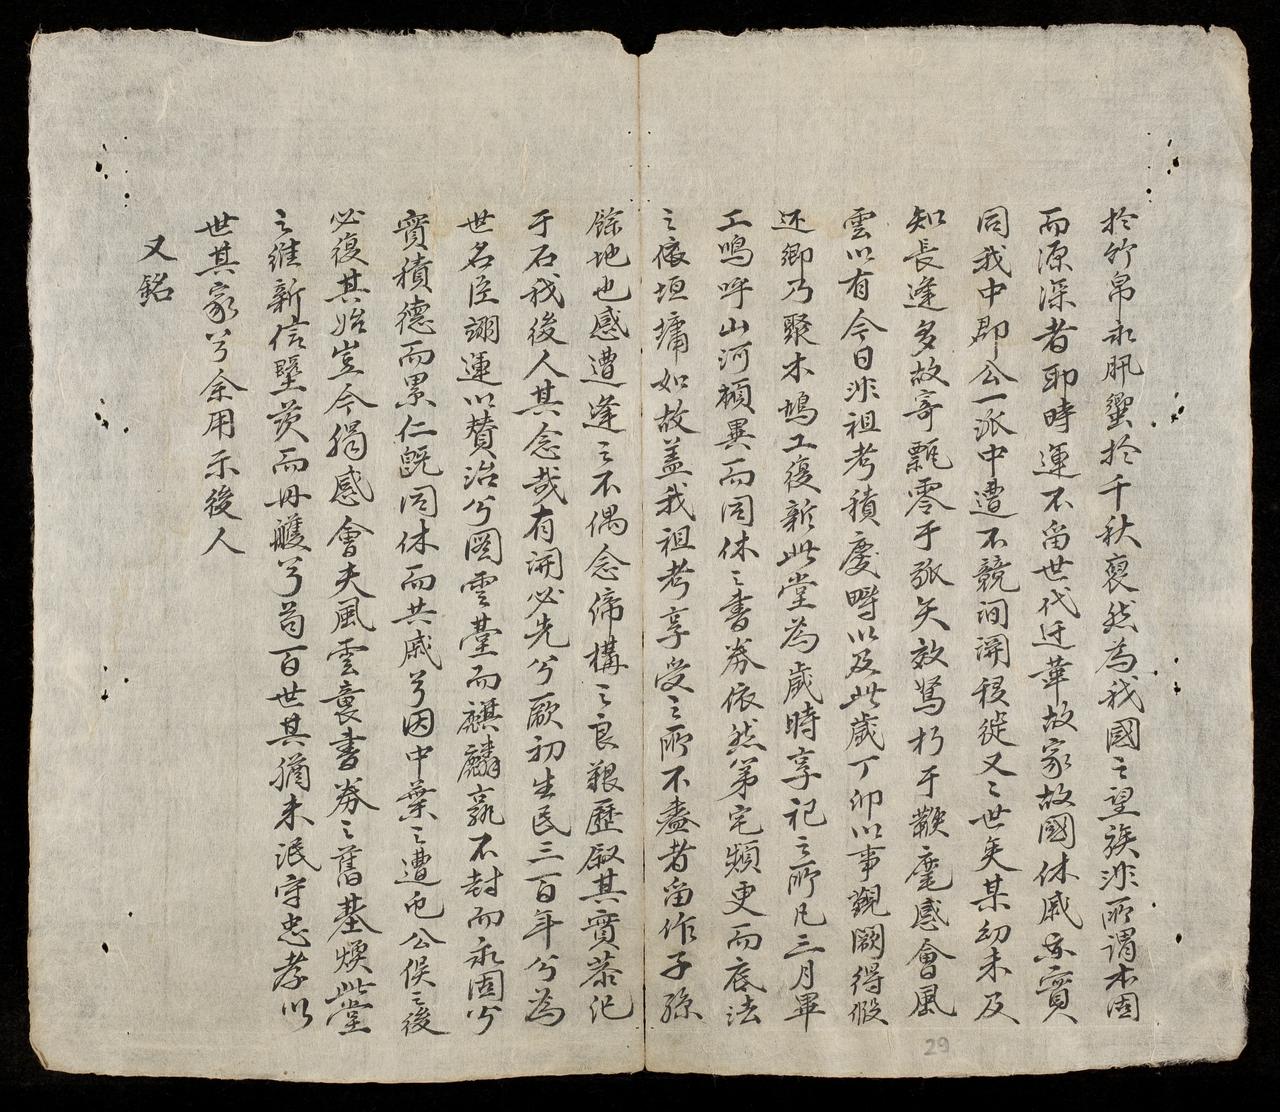 於竹帛永肸蠁於千秋裒然為我國之望族非所謂本固
而源深者耶時運不留世代迁革故家故國休戚亦實
同我中郡公一派中遭不競涧湃移徙又〻世矣某幼未及
知長逢多故寄瓢零于弧矢效駑朽于鞭麾感會風
雲以有今日非祖考積慶疇以及此歲丁卯以事覲闕得假
还鄉乃聚木鳩工復新此堂為歲時享祀之所凡三月畢
工嗚呼山河頓異而同休之書券依然第宅頻更而底法
之依垣墉如故盖我祖考享受之所不盡者留作子孫
餘地也感遭逢之不偶念締構之良艱歷叙其實恭紀
于石我後人其念哉有開必先兮厥初生民三百年兮為
世名臣翊運以贊治兮圖雲臺而麒麟孰不封而永固兮
實積德而累仁既同休而共戚兮因中葉之遭屯公侯之後
必復其始豈今獨感會夫風雲衰書券之舊基煥此堂
之維新信墍茨而丹雘兮苟百世其猶未泯守忠孝以
世其家兮余用示後人
又銘
29